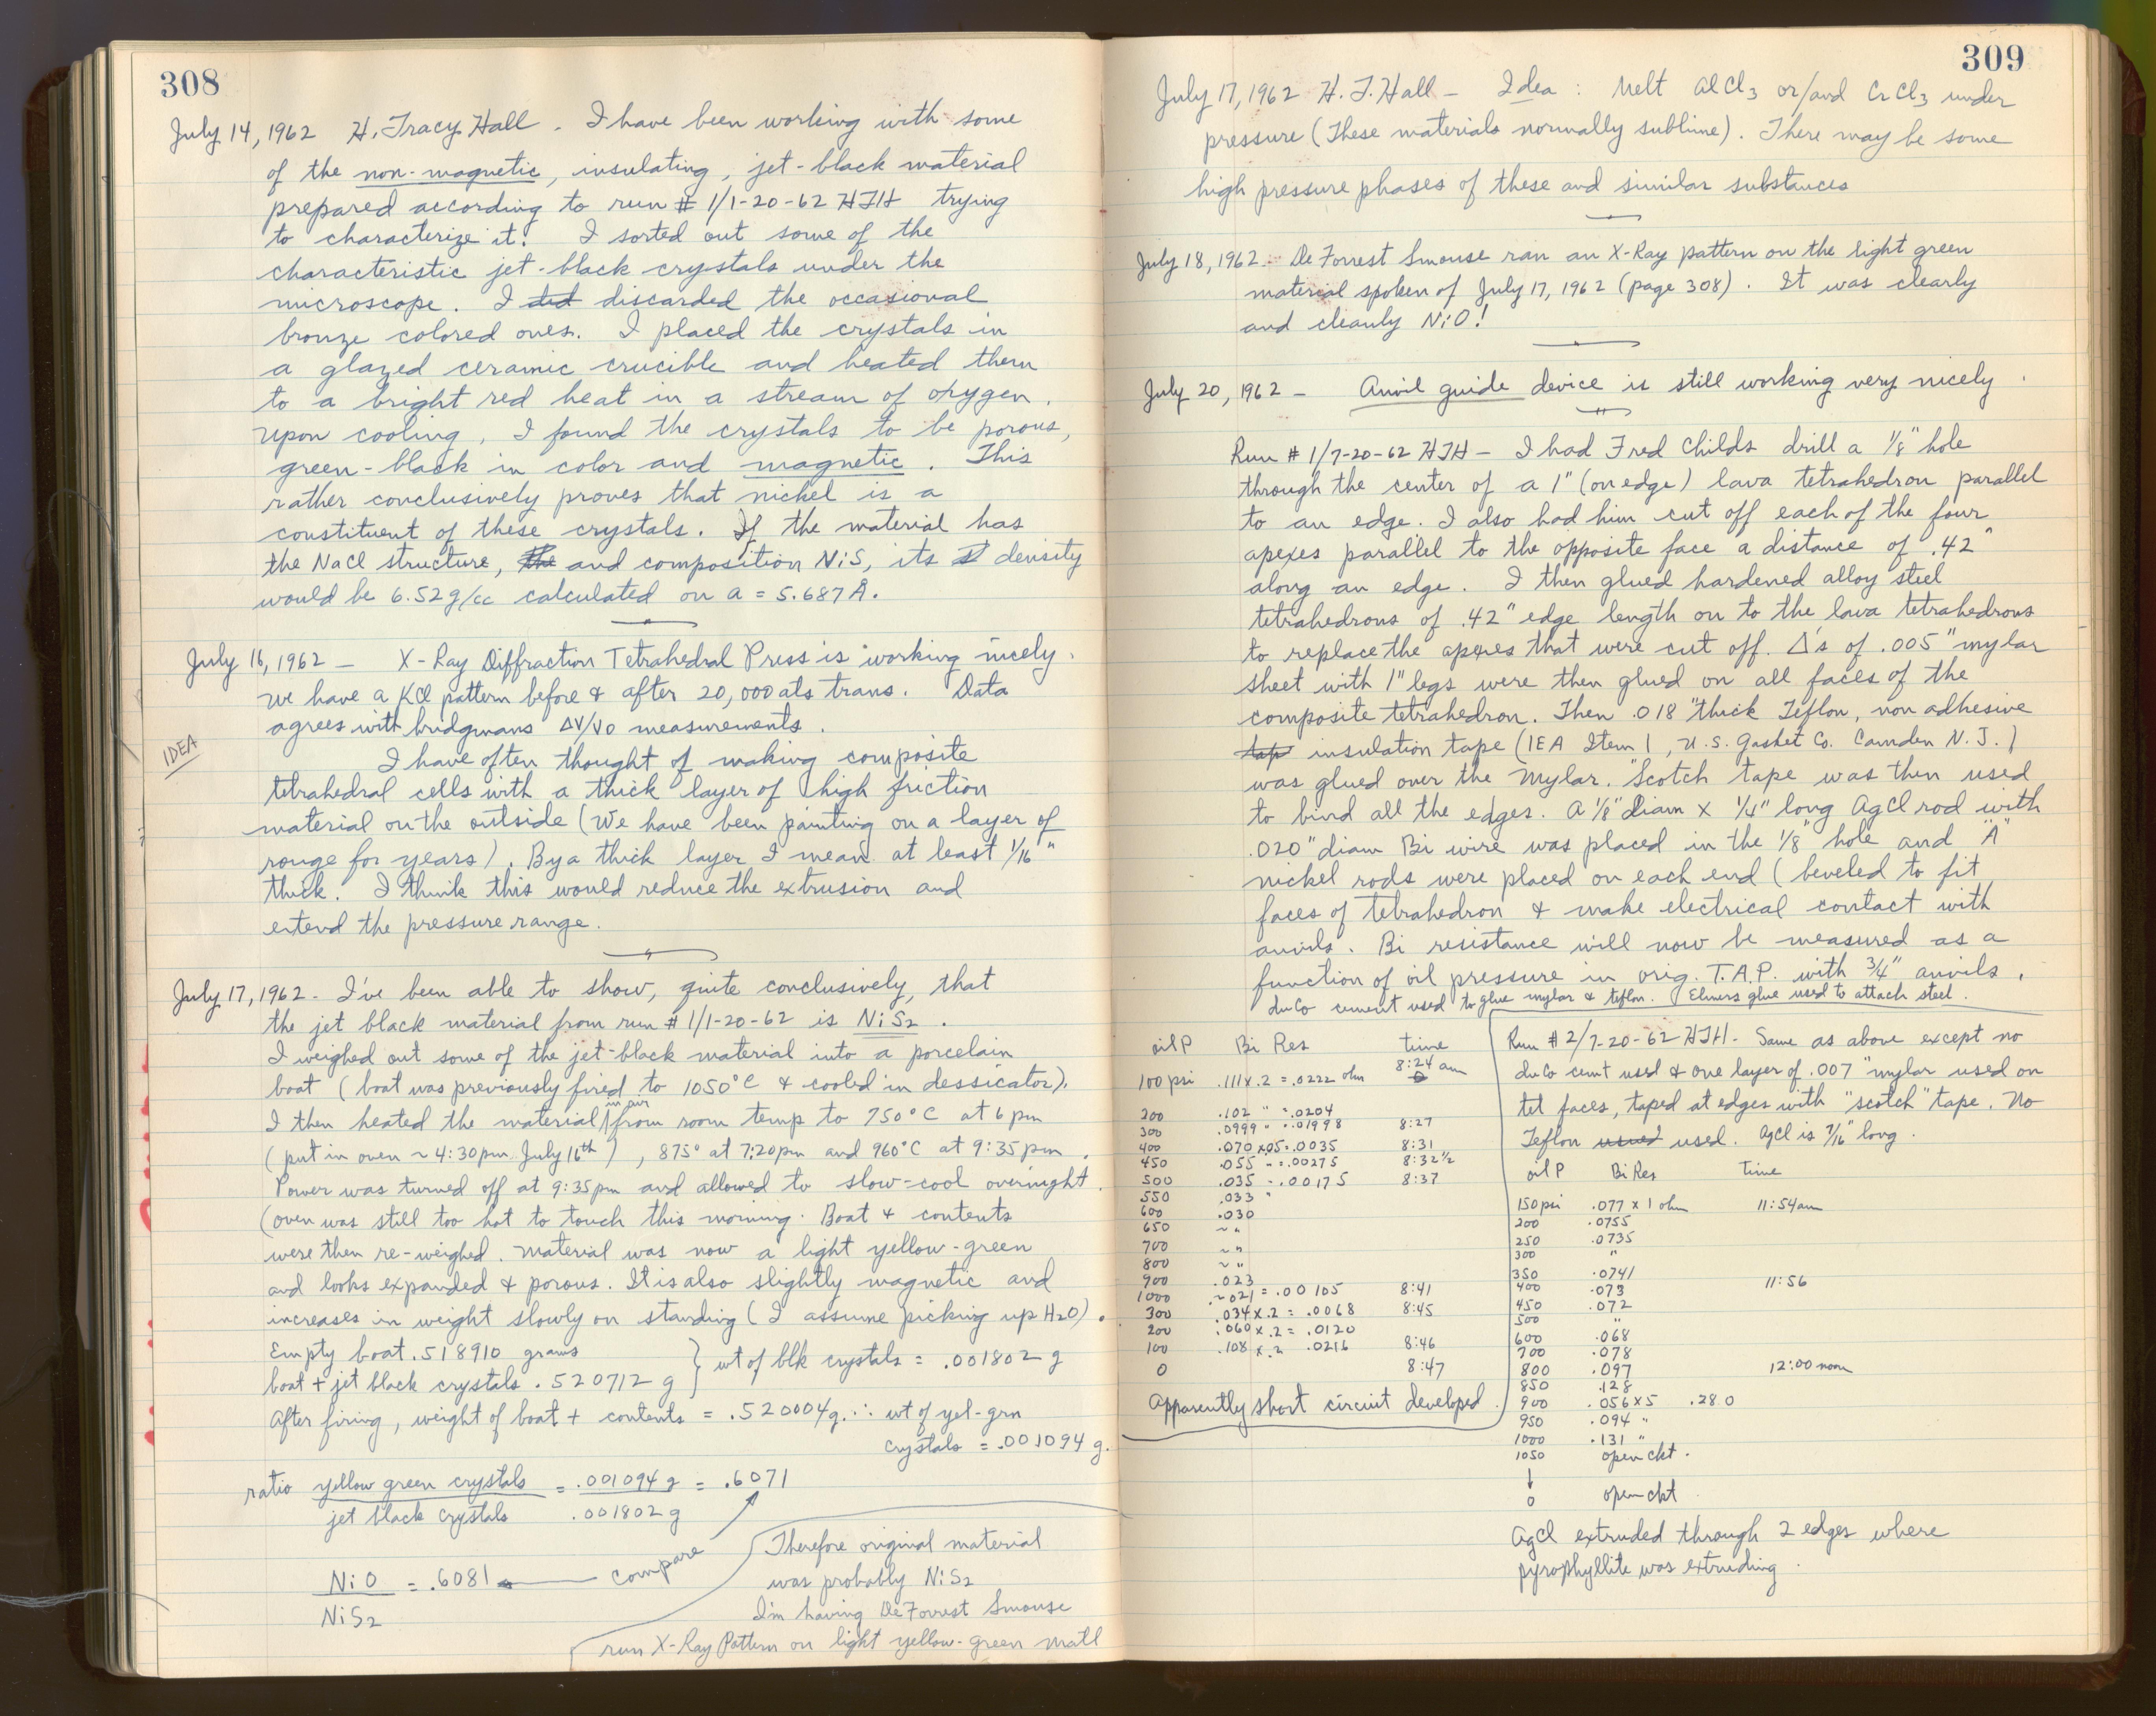 308
July 14, 1962 H. Tracy Hall. I have been working with some
of the non-magnetic, insulating, jet-black material
prepared according to run # 1/1-20-62 HTH trying
to characterize it. I sorted out some of the
characteristic jet-black crystals under the
microscope. I did discarded the occasional
bronze colored ones. I placed the crystals in
a glazed ceramic crucible and heated them
to a bright red heat in a stream of oxygen.
Upon cooling, I found the crystals to be porous,
green-black in color and magnetic. This
rather conclusively proves that nickel is a
constituent of these crystals. If the material has
the NaCl structure, the and composition NiS, its d density
would be 6.52g/cc calculated on a = 5.687Å.
July 16, 1962 — X-Ray Diffraction Tetrahedral Press is working nicely.
We have a KCl pattern before & after 20,000 ats trans. Data
agrees with bridgmans ΔV/V0 measurements.
IDEA
I have often thought of making composite
tetrahedral cells with a thick layer of high friction
material on the outside (We have been painting on a layer of
rouge for years). By a thick layer I mean at least 1/16"
thick. I think this would reduce the extrusion and
extend the pressure range.
July 17, 1962 - I've been able to show, quite conclusively, that
the jet black material from run # 1/1-20-62 is NiS2.
I weighed out some of the jet-black material into a porcelain
boat (boat was previously fired to 1050°C & cooled in dessicator).
I then heated the material in air from room temp to 750°C at 6 pm
(put in oven ~ 4:30 pm July 16th), 875° at 7:20 pm and 960°C at 9:35 pm.
Power was turned off at 9:35 pm and allowed to slow-cool overnight.
(oven was still too hot to touch this morning. Boat & contents
were then re-weighed. Material was now a light yellow-green
and looks expanded & porous. It is also slightly magnetic and
increases in weight slowly on standing (I assume picking up H2O).
Empty boat .518910 grams
boat + jet black crystals .520712 g } wt of blk crystals = .001802 g
After firing, weight of boat + contents = .520004g. ∴ wt of yel-grn
crystals = .001094 g.
ratio yellow green crystals / jet black crystals = .001094 g / .001802 g = .6071
NiO / NiS2 = .6081 ← compare
Therefore original material
was probably NiS2
I'm having DeForrest Smouse
run X-Ray Pattern on light yellow-green matl
309
July 17, 1962 H. T. Hall — Idea : Melt AlCl3 or/and CrCl3 under
pressure (These materials normally sublime). There may be some
high pressure phases of these and similar substances
July 18, 1962. DeForrest Smouse ran an X-Ray pattern on the light green
material spoken of July 17, 1962 (page 308). It was clearly
and cleanly NiO!
July 20, 1962 — Anvil guide device is still working very nicely.
Run # 1/7-20-62 HTH — I had Fred Childs drill a 1/8" hole
through the center of a 1" (on edge) lava tetrahedron parallel
to an edge. I also had him cut off each of the four
apexes parallel to the opposite face a distance of .42"
along an edge. I then glued hardened alloy steel
tetrahedrons of .42" edge length on to the lava tetrahedrons
to replace the apexes that were cut off. Δ's of .005" mylar
sheet with 1" legs were then glued on all faces of the
composite tetrahedron. Then .018" thick Teflon, non adhesive
tape insulation tape (IEA Item 1, U.S. Gasket Co. Camden N.J.)
was glued over the Mylar. "Scotch tape was then used
to bind all the edges. A 1/8" diam x 1/4" long AgCl rod with
.020" diam Bi wire was placed in the 1/8" hole and "A"
nickel rods were placed on each end (beveled to fit
faces of tetrahedron & make electrical contact with
anvils. Bi resistance will now be measured as a
function of oil pressure in orig. T.A.P. with 3/4" anvils.
duCo cement used to glue mylar & teflon. Elmers glue used to attach steel.
oil P Bi Res time
100 psi .111x.2 = .0222 ohm 8:24 am
200 .102 " = .0204
300 .0999 " = .01998 8:27
400 .070 x.05 = .0035 8:31
450 .055 " = .00275 8:32½
500 .035 " = .00175 8:37
550 .033 "
600 .030
650 ~ "
700 ~ "
800 ~ "
900 .023
1000 ~.021 = .00105 8:41
300 .034 x .2 = .0068 8:45
200 .060 x .2 = .0120
100 .108 x .2 .0216 8:46
0 8:47
Apparently short circuit developed.
Run # 2/7-20-62 HTH. Same as above except no
duCo cemt used & one layer of .007" mylar used on
tet faces, taped at edges with "scotch" tape. No
Teflon usued used. AgCl is 7/16" long.
oil P Bi Res time
150 psi .077 x 1 ohm 11:54 am
200 .0755
250 .0735
300 "
350 .0741
400 .073 11:56
450 .072
500 "
600 .068
700 .078
800 .097 12:00 noon
850 .128
900 .056 x 5 .280
950 .094 "
1000 .131 "
1050 open ckt.
↓
0 open ckt
AgCl extruded through 2 edges where
pyrophyllite was extruding.